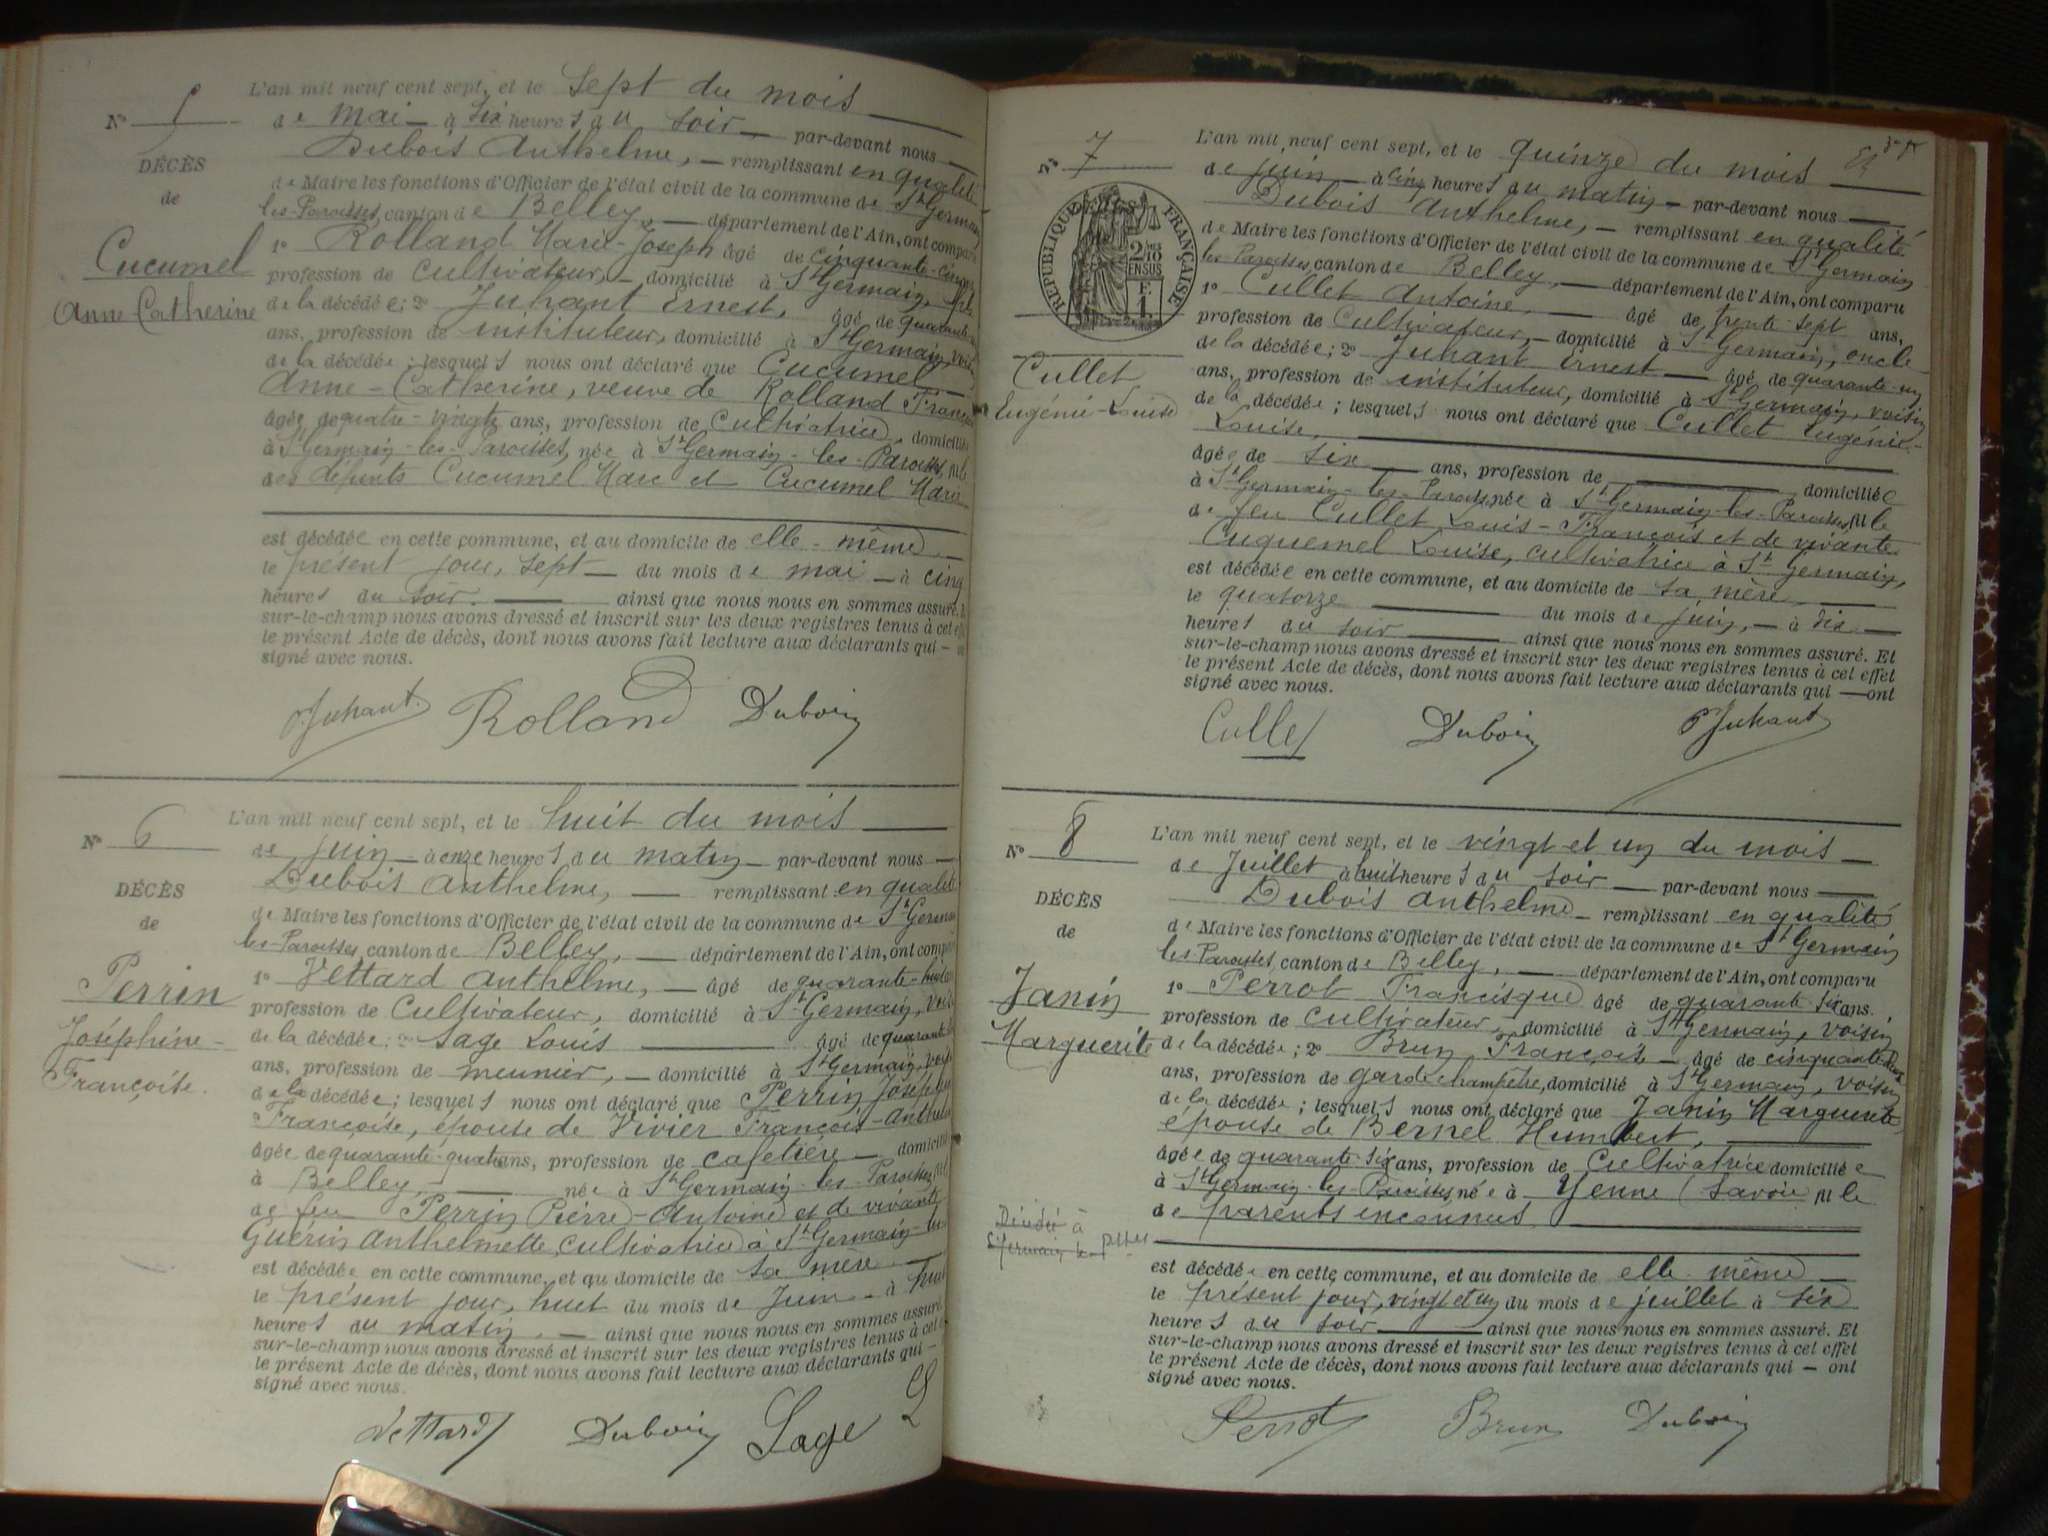 L'an mil neuf cent sept, et le sept du mois
N° 5
de Mai à six heures du soir par-devant nous
Dubois Anthelme, remplissant en qualité
DÉCÈS
de Maire les fonctions d'Officier de l'état civil de la commune de St Germain
de
les-Paroisses, canton de Belley, département de l'Ain, ont comparu
1° Rolland Marie-Joseph âgé de cinquante-cinq ans
Cucumel
profession de cultivateur, domicilié à St Germain, fils
Anne Catherine
de la décédée; 2° Juhant Ernest, âgé de quarante-un
ans, profession de instituteur, domicilié à St Germain, voisin
de la décédée; lesquels nous ont déclaré que Cucumel
Anne-Catherine, veuve de Rolland François
âgée de quatre-vingts ans, profession de Cultivatrice, domiciliée
à St Germain-les-Paroisses, née à St Germain-les-Paroisses, fille
des défunts Cucumel Marc et Cucumel Marie
est décédée en cette commune, et au domicile de elle-même
le présent jour, sept du mois de mai à cinq
heures du soir. ainsi que nous nous en sommes assuré. Et
sur-le-champ nous avons dressé et inscrit sur les deux registres tenus à cet effet
le présent Acte de décès, dont nous avons fait lecture aux déclarants qui ont
signé avec nous.
Juhant Rolland Dubois
L'an mil neuf cent sept, et le huit du mois
N° 6
de juin à onze heures du matin par-devant nous
Dubois Anthelme, remplissant en qualité
DÉCÈS
de Maire les fonctions d'Officier de l'état civil de la commune de St Germain
de
les-Paroisses, canton de Belley, département de l'Ain, ont comparu
1° Vettard Anthelme, âgé de quarante-huit ans
Perrin
profession de Cultivateur, domicilié à St Germain, voisin
Joséphine-
de la décédée; 2° Sage Louis âgé de quarante
Françoise.
ans, profession de meunier, domicilié à St Germain, voisin
de la décédée; lesquels nous ont déclaré que Perrin Joséphine
Françoise, épouse de Vivier François-Anthelme
âgée de quarante-quatre ans, profession de cafetière domiciliée
à Belley, née à St Germain-les-Paroisses, fille
de feu Perrin Pierre-Antoine et de vivante
Guérin Anthelmette, cultivatrice à St Germain-les-
est décédée en cette commune, et au domicile de sa mère
le présent jour, huit du mois de Juin à huit
heures du matin. ainsi que nous nous en sommes assuré.
sur-le-champ nous avons dressé et inscrit sur les deux registres tenus à cet
le présent Acte de décès, dont nous avons fait lecture aux déclarants qui
signé avec nous.
Vettard Dubois Sage
L'an mil neuf cent sept, et le quinze du mois
N° 7
de juin à cinq heures du matin par-devant nous
Dubois Anthelme, remplissant en qualité
RÉPUBLIQUE FRANÇAISE
2/10 EN SUS
F. 1
de Maire les fonctions d'Officier de l'état civil de la commune de St Germain
les Paroisses, canton de Belley, département de l'Ain, ont comparu
1° Cullet Antoine, âgé de trente-sept ans,
profession de Cultivateur, domicilié à St Germain, oncle
Cullet
de la décédée; 2° Juhant Ernest âgé de quarante-un
Eugénie-Louise
ans, profession de instituteur, domicilié à St Germain, voisin
de la décédée; lesquels nous ont déclaré que Cullet Eugénie-
Louise,
âgée de six ans, profession de domiciliée
à St Germain-les-Paroisses, née à St Germain-les-Paroisses, fille
de feu Cullet Louis-François et de vivante
Cuquemel Louise, cultivatrice à St Germain,
est décédée en cette commune, et au domicile de sa mère
le quatorze du mois de juin, à dix
heures du soir ainsi que nous nous en sommes assuré. Et
sur-le-champ nous avons dressé et inscrit sur les deux registres tenus à cet effet
le présent Acte de décès, dont nous avons fait lecture aux déclarants qui ont
signé avec nous.
Cullet Dubois Juhant
L'an mil neuf cent sept, et le vingt et un du mois
N° 8
de Juillet à huit heures du soir par-devant nous
Dubois Anthelme remplissant en qualité
DÉCÈS
de Maire les fonctions d'Officier de l'état civil de la commune de St Germain
de
les Paroisses, canton de Belley, département de l'Ain, ont comparu
1° Perrot Francisque âgé de quarante six ans.
Janin
profession de cultivateur, domicilié à St Germain, voisin
Marguerite
de la décédée; 2° Brun François âgé de cinquante deux
ans, profession de garde champêtre, domicilié à St Germain, voisin
de la décédée; lesquels nous ont déclaré que Janin Marguerite
épouse de Bernel Humbert,
âgée de quarante-six ans, profession de Cultivatrice domiciliée
à St Germain-les-Paroisses, née à Yenne (Savoie fille
de parents inconnus
Décédée à
St Germain les
est décédée en cette commune, et au domicile de elle-même
le présent jour, vingt et un du mois de juillet à six
heures du soir ainsi que nous nous en sommes assuré. Et
sur-le-champ nous avons dressé et inscrit sur les deux registres tenus à cet effet
le présent Acte de décès, dont nous avons fait lecture aux déclarants qui ont
signé avec nous.
Perrot Brun Dubois